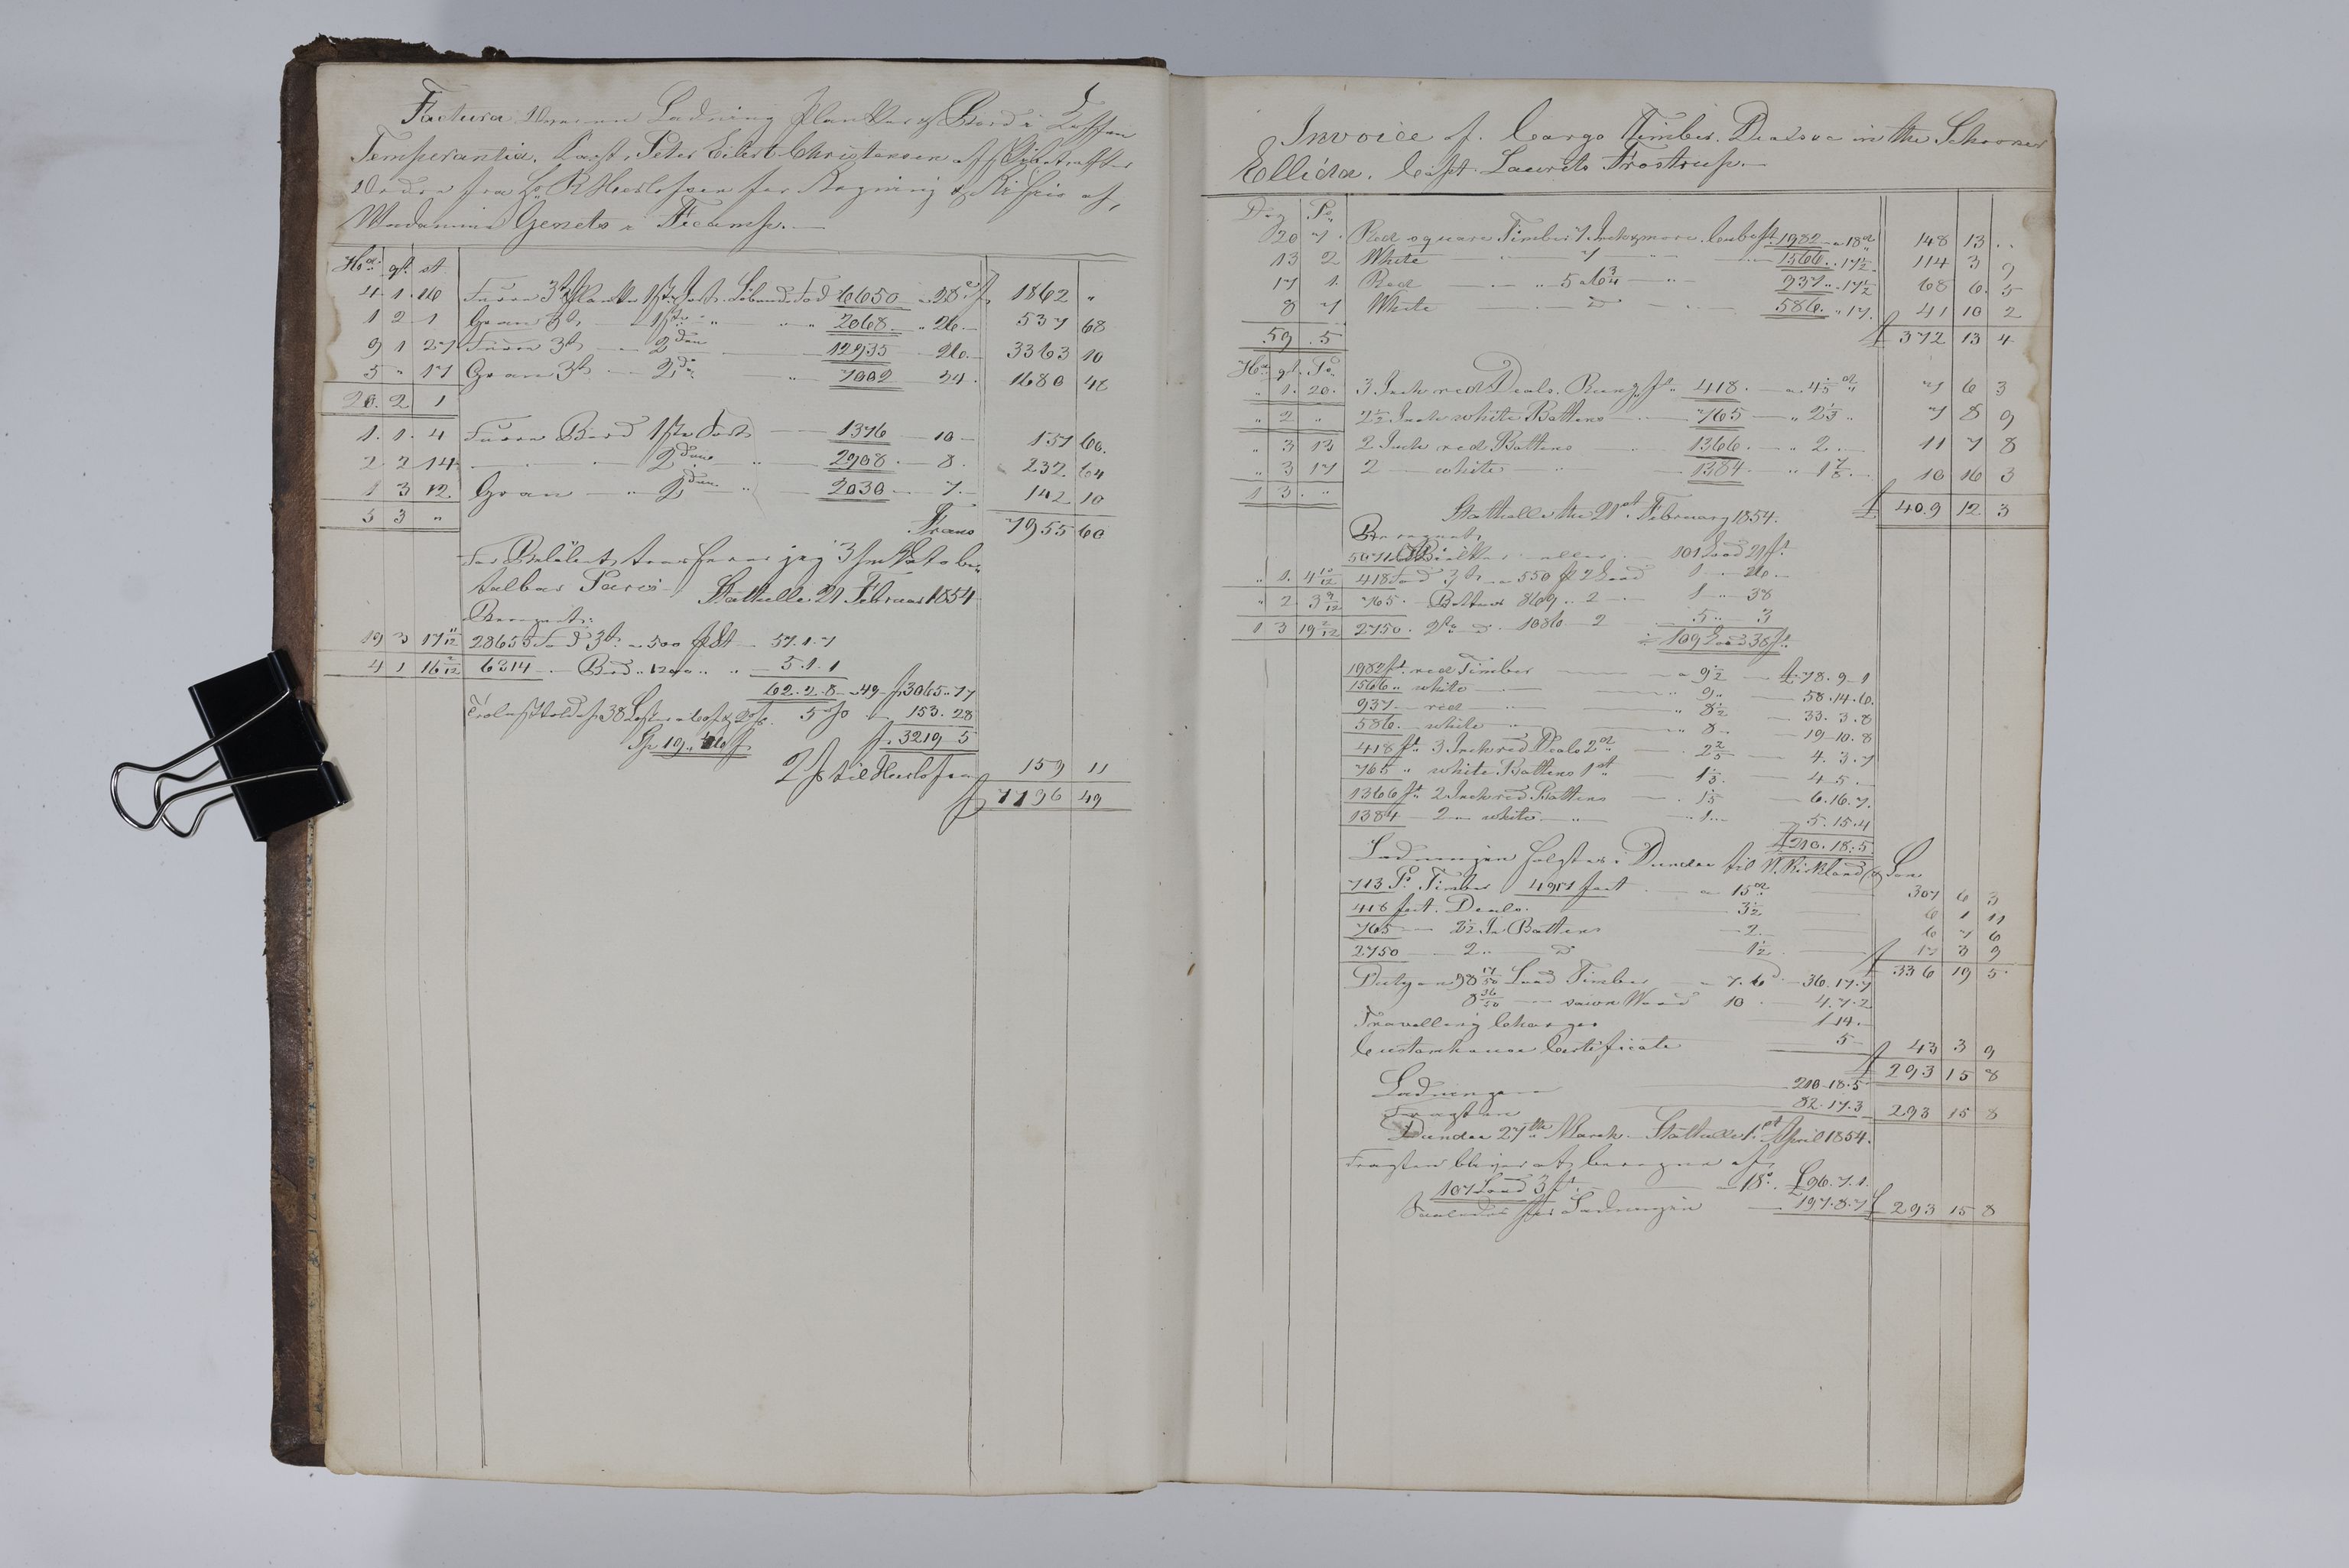 Factura over en Ladning Planker & Bord i Tofften
Temperantia, Capt. Peter Eilert Christensen efter
Ordre fra Hr P. Herlofsen for Regning & Risico af,
Madamme Genets i Fecamp.
Hd. qt. st.
4 1 16 Furru 3t Planker 1ste Sort. Löbende Fod 6650 a 28 f 1862 "
1 2 1 Gran 3t 1ste " " 2068 " 26 537 68
9 1 27 Furru 3t 2den 12935 26 3363 10
5 " 17 Gran 3t 2den " 7002 24 1680 48
20. 2 1
1. 1. 4 Furru Bord 1ste Sort 1376 10 137 60
2 2 14 2den " 2908 8 232 64
1 3 12. Gran " 2den " 2030 7 142 10
5 3 " Francs 7955 60
For Belöbet, trasserer jeg 3 be-
talbar Paris. Stathelle 21 Februar 1854
Beregnet:
19 3 17 11/12 28655 Fod 3t a 500 St 57.1.7
4 1 16 2/12 6314 Bord " 1200 " " 5.1.1
62.2.8 a 49 f 3045.77
38 5 % 153.28
Sp 19. f. 3219 5
2 % til Herlofsen 159 11
f 7796 49
Invoice of. Cargo Timber. Deals &c in the Schooner
Ellida. Capt. Laurits Trostrup.
Dz Ps
20 7 Red square Timber 7 Inch & more. Cubeft. 1982 a 18d 148 13 ..
13 2 White " 7 1566 " 17½ 114 3 9
17 1. Red " 5 a 6¾ " 937 " 17½ 68 6. 5
8 7 White Do 586. " 17. 41 10 2
59 . 5 £ 372 13 4
Hd qt. Ps
" 1. 20. 3 Inch red Deals. Rung ft 418. a 4⅕d 7 6 3
" 2 " 2½ Inch white Battens 765 " 2⅓ 7 8 9
" 3 13 2 Inch red Battens 1366. " 2. 11 7 8
" 3 17 2 white " 1384. " 1⅞. 10 16 3
1 3. " £ 409 12 3
Stathelle the 21st February 1854.
Beregnet,
5071 Bielker eller 101 Load 21 ft
" 1. 4 10/12 418 Fod 3t a 550 ft 2 Load 1 26
" 2 3 9/12 765. Battens 869 " 2 1 " 38
1 3 19 2/12 2750. 2t Do 1086 2 5 " 3
109 Load 38 ft.
1982 ft. red Timber a 9½ £ 78. 9 1
1566 " white " 9 " 58.14.6.
937 red " 8½ 33. 3.8
586. white " 8 " 19.10.8
418 ft. 3 Inch red Deals 2d 2⅖ 4. 3.7
765 " white Battens 1st 1⅓. 4 5
1366 ft. 2 Inch red Battens 1⅕ 6.16.7.
1384 2 white " 1 5.15.4
£ 210.18.5
Ladningen solgtes i Dundee til N. Kirkland & Son
713 Ps. Timber 4951 feet a 15d 307 6 3
418 feet. Deals. 3½ 6 1 11
765 2½ In Battens 2. 6 7 6
2750 2 " Do 1½ 17 3 9
£ 336 19 5
Duty on 98 17/50 Load Timber a 7.6d 36.17.7
8 36/50 sawn Wood 10 4.7.2
Travelling Charges 1 14.
Customhouse Certificate 5 £ 43 3 9
£ 293 15 8
Ladningen 210.18.5
Fragten 82.17.3 293 15 8
Dundee 27th March. Stathelle 1st April 1854.
Fragten bliver at beregne af,
107 Load 3 ft. 18s. £ 96.7.1.
for Ladningen 197.8.7 £ 293 15 8